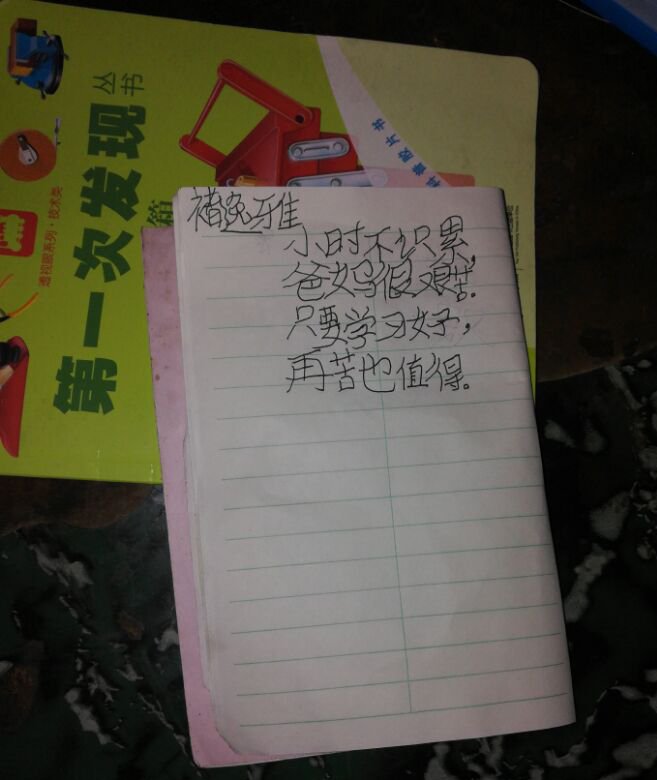 第一次发现
丛书
透视眼系列·技术类
箱
褚逸雅
小时不识累,
爸妈很艰苦.
只要学习好,
再苦也值得.